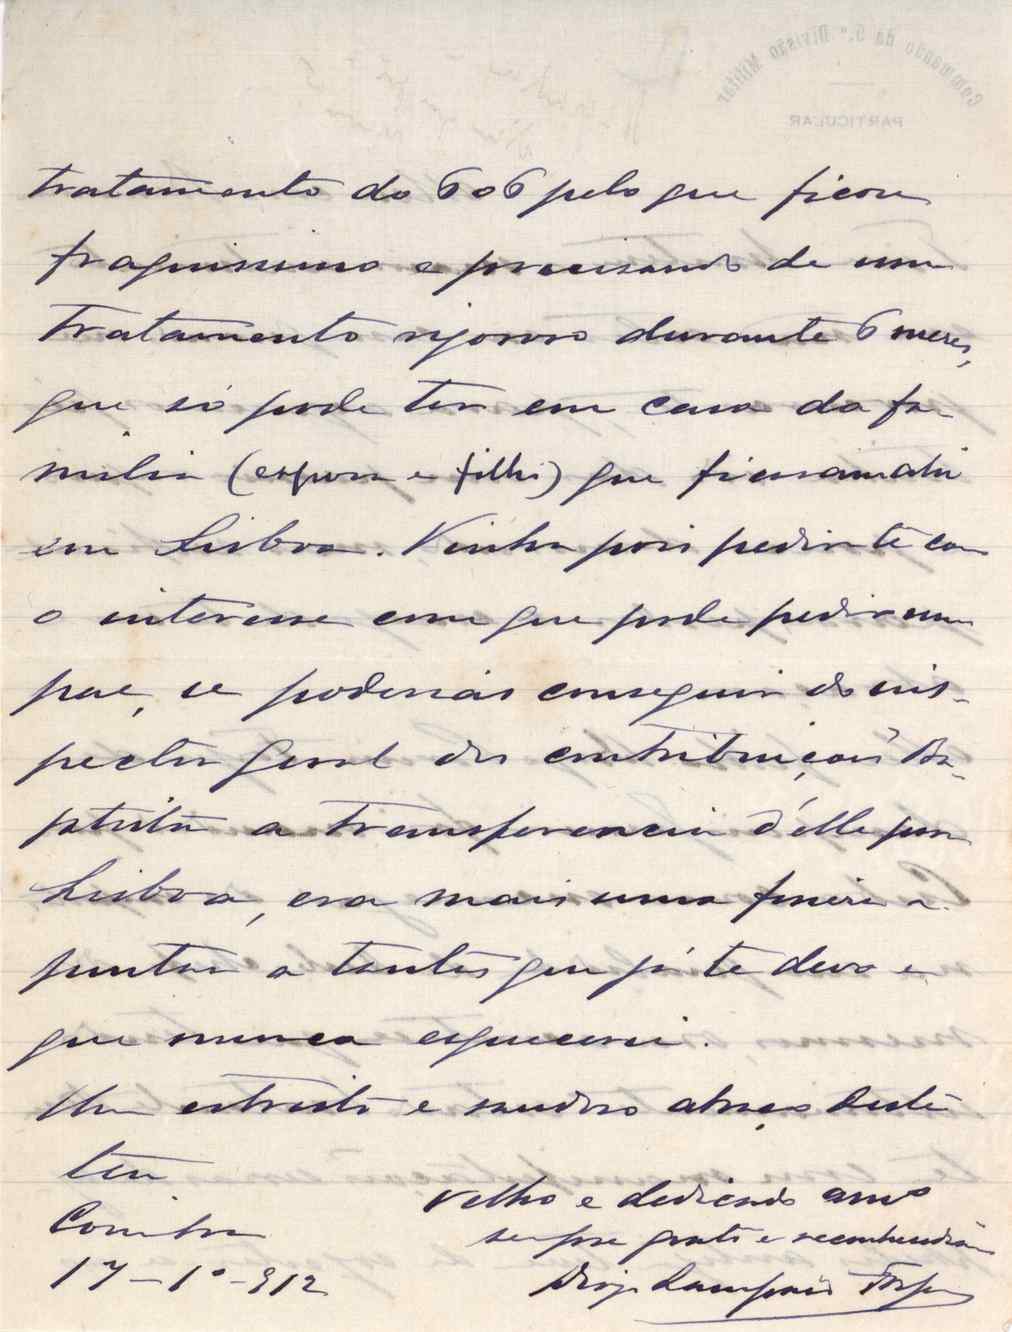 Commando da 5.ª Divisão Militar
PARTICULAR
tratamento do 606 pelo que ficou
fraquissimo e precisando de um
tratamento rigoroso durante 6 meses,
que só pode ter em casa da fa-
milia (esposa e filhi) que ficaram ahi
em Lisboa. Vinha pois pedir-te com
o interesse com que pode pedir um
pae, se poderias conseguir do ins-
pector geral das contribuições Ba-
ptista a transferencia d'elle para
Lisboa, era mais uma fineza a
juntar a tantas que já te devo e
que nunca esquecerei.
Um estreito e saudoso abraço deste
teu
velho e dedicado amo
Coimbra
sempre grato e
17-1º-912